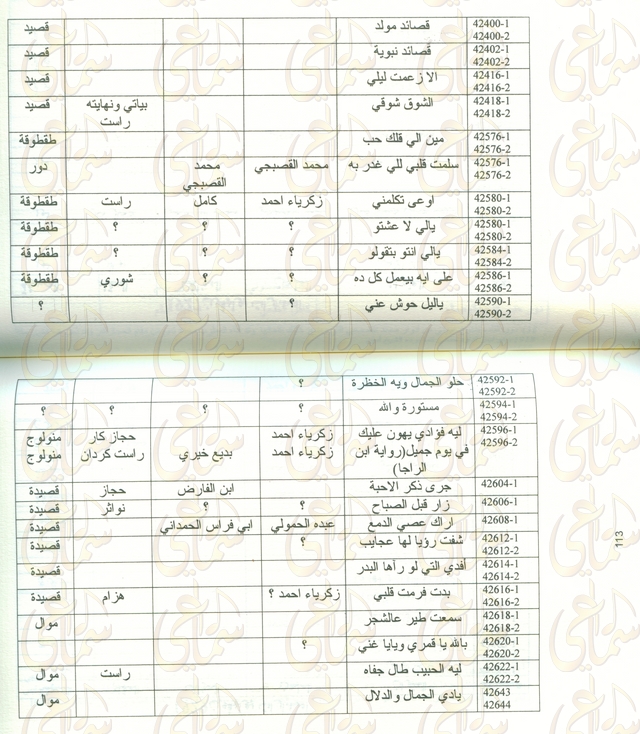 42400-1 قصائد مولد قصيد
42400-2
42402-1 قصائد نبوية قصيد
42402-2
42416-1 الا زعمت ليلي قصيد
42416-2
42418-1 الشوق شوقي بياتي ونهايته قصيد
42418-2 راست
42576-1 مين الي قلك حب طقطوقة
42576-2
42576-1 سلمت قلبي للي غدر به محمد القصبجي محمد دور
42576-2 القصبجي
42580-1 اوعى تكلمني زكرياء احمد كامل راست طقطوقة
42580-2
42580-1 يالي لا عشتو ؟ ؟ ؟ طقطوقة
42580-2
42584-1 يالي انتو بتقولو ؟ ؟ ؟ طقطوقة
42584-2
42586-1 على ايه بيعمل كل ده ؟ ؟ شوري طقطوقة
42586-2
42590-1 ياليل حوش عني ؟ ؟
42590-2
42592-1 حلو الجمال ويه الخظرة ؟
42592-2
42594-1 مستورة والله ؟ ؟ ؟ ؟
42594-2
42596-1 ليه فؤادي يهون عليك زكرياء احمد حجاز كار منولوج
42596-2 في يوم جميل(رواية ابن زكرياء احمد بديع خيري راست كردان منولوج
الراجا)
42604-1 جرى ذكر الاحبة ابن الفارض حجاز قصيدة
42606-1 زار قبل الصباح ؟ ؟ نواثر قصيدة
42608-1 اراك عصي الدمع عبده الحمولي ابي فراس الحمداني قصيدة
42612-1 شفت رؤيا لها عجايب ؟ قصيدة
42612-2
42614-1 أفدي التي لو رآها البدر قصيدة
42614-2
42616-1 بدت فرمت قلبي زكرياء احمد ؟ هزام قصيدة
42616-2
42618-1 سمعت طير عالشجر موال
42618-2
42620-1 بالله يا قمري ويايا غني ؟
42620-2
42622-1 ليه الحبيب طال جفاه راست موال
42622-2
42643 يادي الجمال والدلال موال
42644
113
سماعي